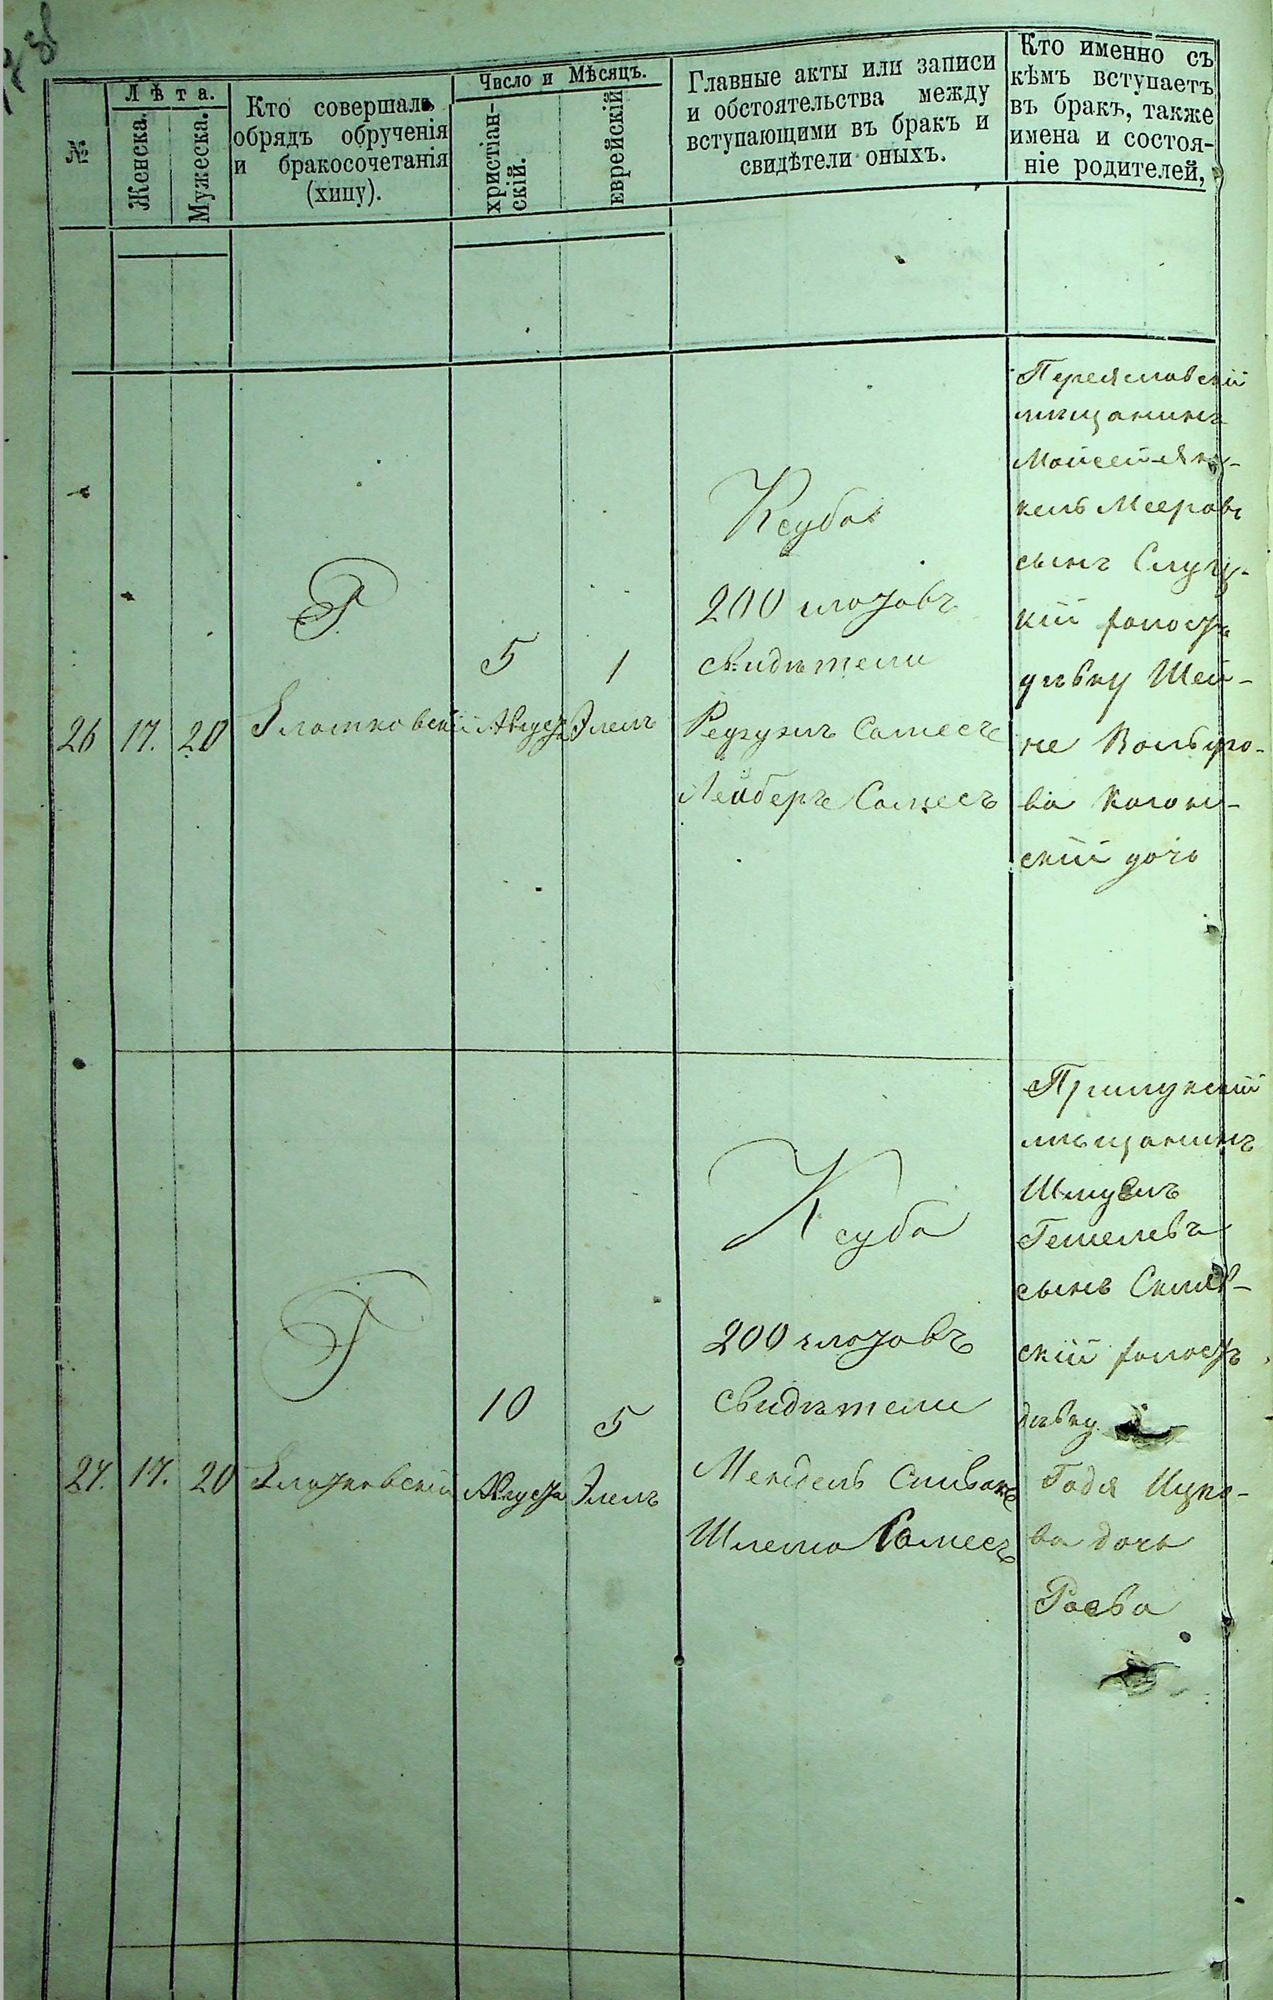 №
Лѣта.
Женска.
Мужеска.
Кто совершалъ
обрядъ обрученія
и бракосочетанія
(хипу).
Число и Мѣсяцъ.
христіан-
скій.
еврейскій
Главные акты или записи
и обстоятельства между
вступающими въ бракъ и
свидѣтели оныхъ.
Кто именно съ
кѣмъ вступаетъ
въ бракъ, также
имена и состоя-
ніе родителей,
26
17.
20
Р
Златковскій
5
Августа
1
Элелъ
Ксуба
200 злотовъ
свидѣтели
Самесъ
Лейберъ Самесъ
Переяславскій
мѣщанинъ
Мойсей Ян-
кель Мееровъ
сынъ Слуц-
кій холостъ
дѣвку Шей-
не Вольфо-
ва Каган-
скій дочь
27.
17.
20
Р
Златковскій
10
Августа
5
Элелъ
Ксуба
200 злотовъ
свидѣтели
Мендель Спивакъ
Шлема Самесъ
Прилукскій
мѣщанинъ
Шмуель
Гешелевъ
сынъ
скій холостъ
дѣвку
Годя Ицко-
ва дочь
Раева